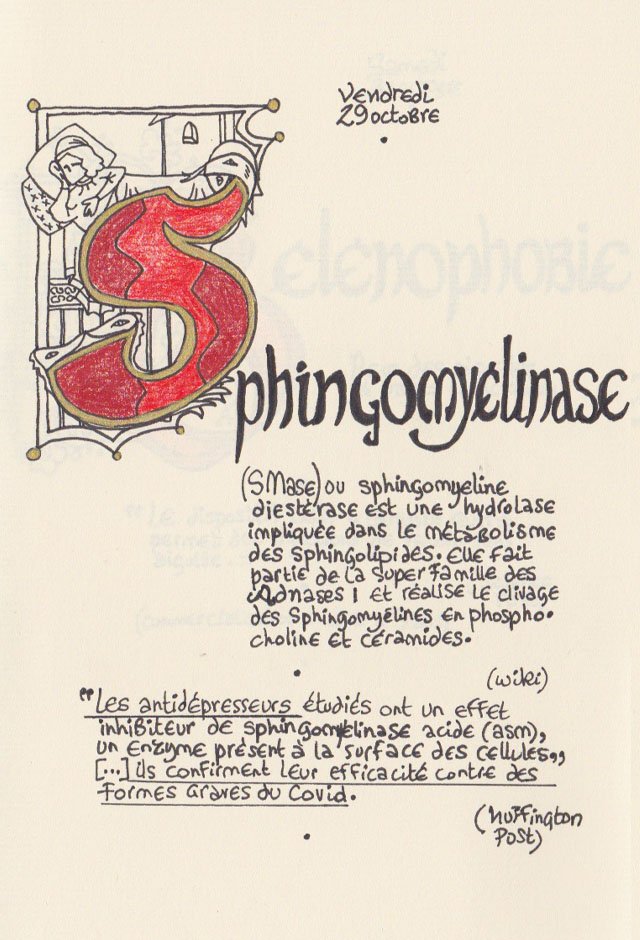 Vendredi
29 octobre
Sphingomyélinase
(SMase) ou sphingomyéline
diestérase est une hydrolase
impliquée dans le métabolisme
des sphingolipides. Elle fait
partie de la super famille des
Adnases 1 et réalise le clivage
des sphingomyélines en phospho.
choline et céramides.
(wiki)
"Les antidépresseurs étudiés ont un effet
inhibiteur de sphingomyélinase acide (asm),
un enzyme présent à la surface des cellules,,
[...] ils confirment leur efficacité contre des
formes graves du Covid.
(Huffington
Post)
elenophobie